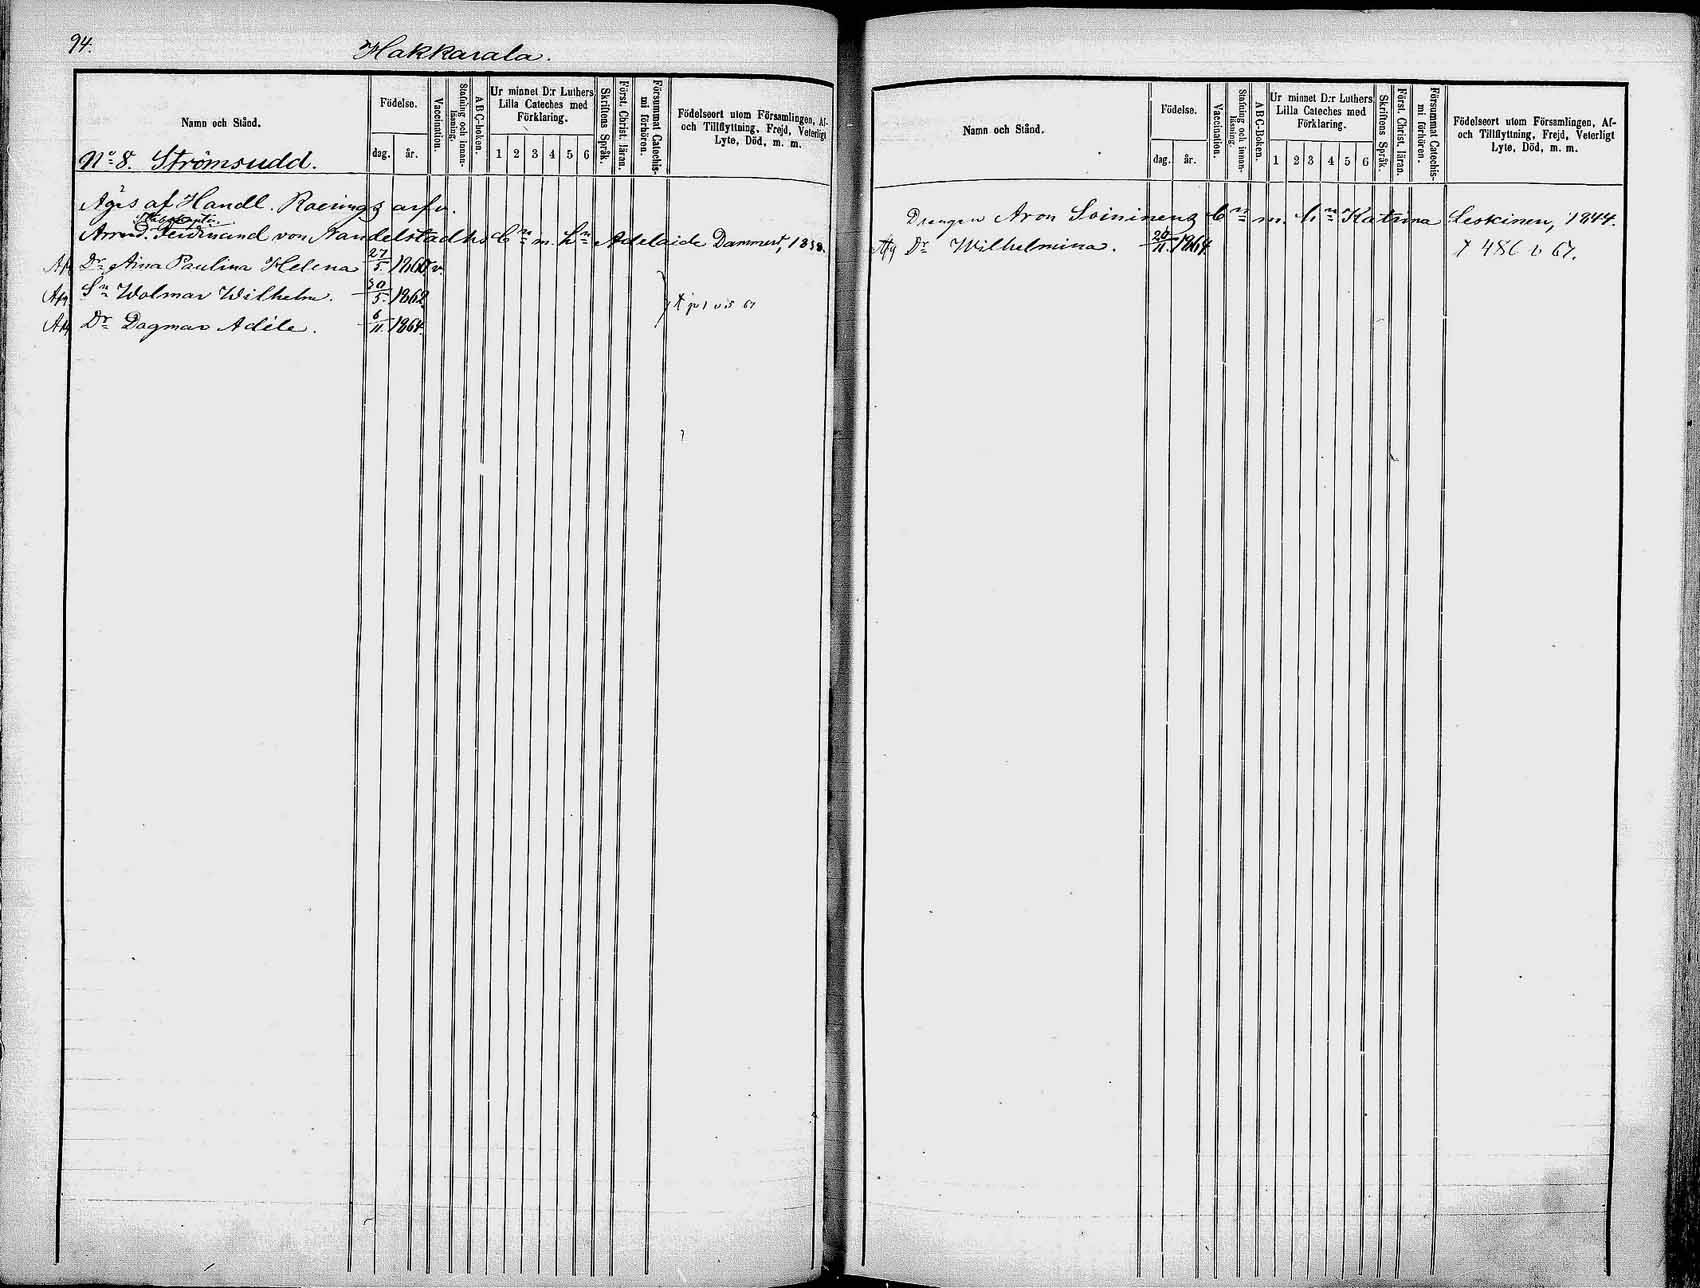 94.
Hakkarala.
Namn och Stånd.
Födelse.
dag.
år.
Vaccination.
Stafning och innanläsning.
ABC-boken.
Ur minnet D:r Luthers Lilla Cateches med Förklaring.
1 2 3 4 5 6
Skriftens Språk.
Först. Christ. läran.
Försummat Catechismi förhören.
Födelseort utom Församlingen, Af- och Tillflyttning, Frejd, Veterligt Lyte, Död, m. m.
No 8. Strömsudd.
Äges af Handl. Roerings arfv.
Arrend. Ferdinand von Nandelstadhs Bn m. hn Adelaide Dammert, 1838.
Dr Aina Paulina Helena 27/5 1860. v.
Sn Wolmar Wilhelm. 30/5 1862
Dr Dagmar Adéle. 6/11 1864.
Namn och Stånd.
Födelse.
dag.
år.
Vaccination.
Stafning och innanläsning.
ABC-Boken.
Ur minnet D:r Luthers Lilla Cateches med Förklaring.
1 2 3 4 5 6
Skriftens Språk.
Först. Christ. läran.
Försummat Catechismi förhören.
Födelseort utom Församlingen, Af- och Tillflyttning, Frejd, Veterligt Lyte, Död, m. m.
Drengen Aron Soininens Bn m. hn Katrina Leskinen, 1844.
Dr Wilhelmina. 20/11 1864. 486 v 67.